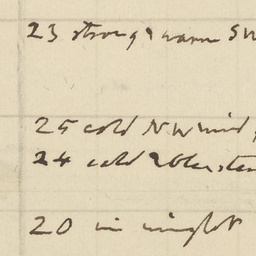 23 strong & warm SW
25 cold NW wind
24 cold & bluster
20 in night